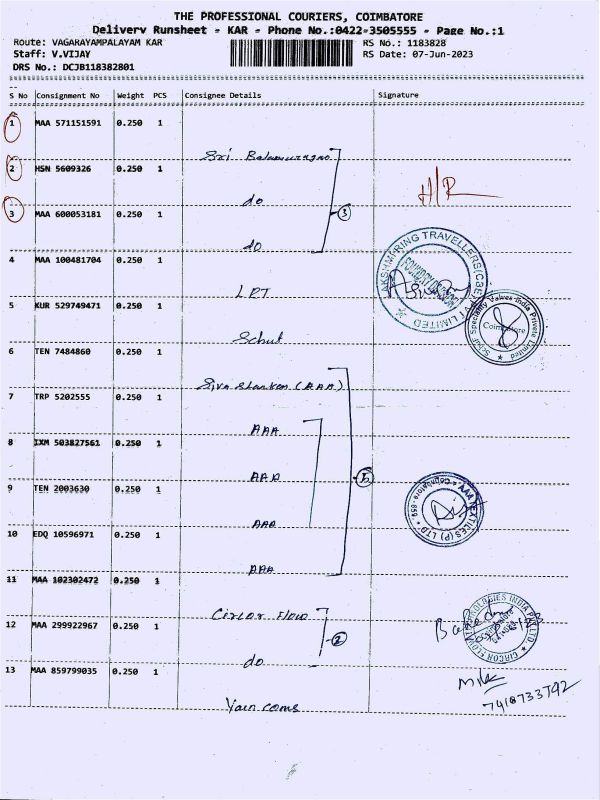 THE PROFESSIONAL COURIERS, COIMBATORE
Delivery Runsheet - KAR - Phone No.:0422-3505555 - Page No.:1
Route: VAGARAYAMPALAYAM KAR RS No.: 1183828
Staff: V.VIJAY RS Date: 07-Jun-2023
DRS No.: DCJB118382801
S No Consignment No Weight PCS Consignee Details Signature
1 MAA 571151591 0.250 1
Sri Balamurugan
2 HSN 5609326 0.250 1
do
H/R
3 MAA 600053181 0.250 1
3
do
4 MAA 100481704 0.250 1
LPT
LAKSHMI RING TRAVELLERS(CBE) LIMITED
5 KUR 529749471 0.250 1
Schuf
Schuf Speciality Valves India Private Limited
Coimbatore
6 TEN 7484860 0.250 1
Siva Shankar (AAA)
7 TRP 5202555 0.250 1
AAA
8 IXM 503827561 0.250 1
AAA
5
9 TEN 2003630 0.250 1
AAA
AAA TEXTILES (P) LTD
Coimbatore-659
10 EDQ 10596971 0.250 1
AAA
11 MAA 102302472 0.250 1
Circor Flow
12 MAA 299922967 0.250 1
2
do
CIRCOR FLOW TECHNOLOGIES INDIA PVT LTD
13 MAA 859799035 0.250 1
Yarn coms